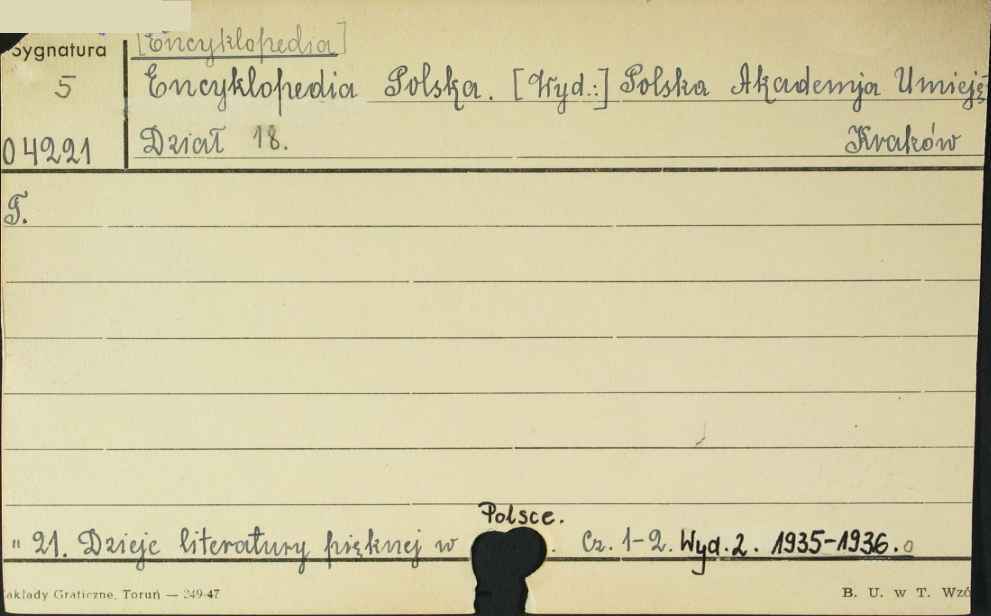 [Encyklopedia]
Sygnatura
5
Encyklopedia Polska. [Wyd.:] Polska Akademja Umieję
04221
Dział 18. Kraków
T.
Polsce.
" 21. Dzieje literatury pięknej w . Cz. 1-2. Wyd. 2. 1935-1936.
akłady Graficzne, Toruń — 249-47
B. U. w T. Wzó